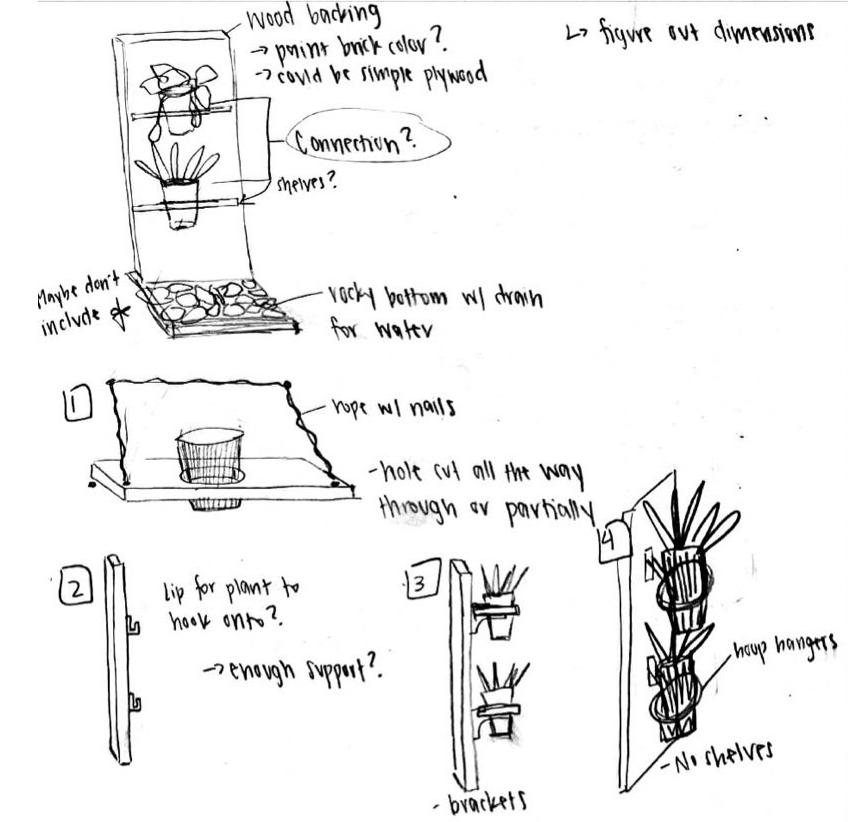 Wood backing
→ paint brick color?
→ could be simple plywood
↳ figure out dimensions
Connection?
shelves?
Maybe don't
include *
rocky bottom w/ drain
for water
1
rope w/ nails
-hole cut all the way
through or partially
2
Lip for plant to
hook onto?
→ enough support?
3
- brackets
4
hoop hangers
- No shelves